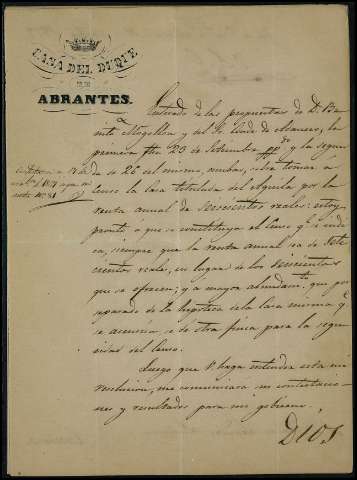 CASA DEL DUQUE
DE
ABRANTES.
Enterado de las propuestas de D. Be
nito Mogollon y del Sr. Conde de
primera fha. 23 de Setiembre ppdo. y la segun
da de 26 del mismo, ambas, sobre tomar á
censo la Casa titulada del Aguila por la
renta anual de seiscientos reales: estoy
pronto a que se constituya el Censo q.e indi
ca, siempre que la renta anual sea de sete
cientos reales, en lugar de los seiscientos
que se ofrecen; y a mayor abundam.to que por
separado de la hipoteca de la Casa misma q.e
se acensúa, se dé otra finca para la segu
ridad del Censo.
Luego que V. haga entender esta mi
resolucion, me comunicará su contestacio
nes y resultados para mi gobierno.
DIOS